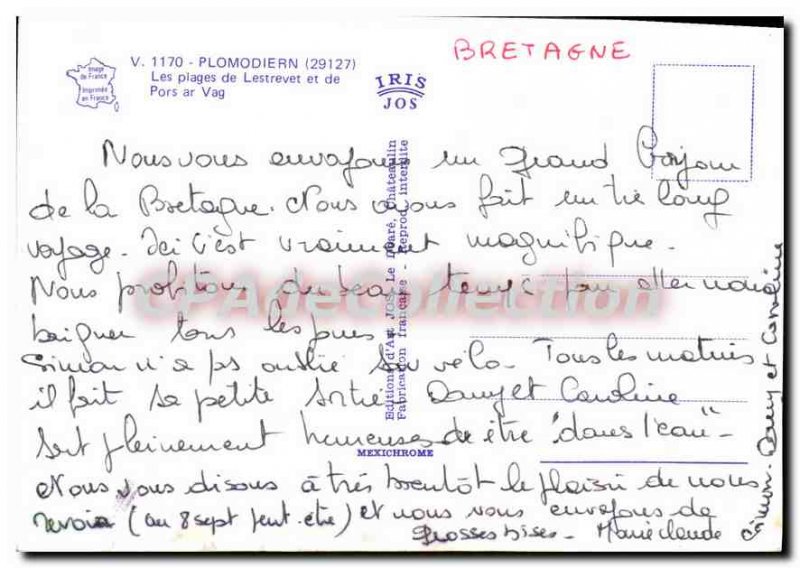 BRETAGNE
V. 1170 - PLOMODIERN (29127)
Les plages de Lestrevet et de
Pors ar Vag
Image
de France
Imprimée
en France
IRIS
JOS
Nous vous envoyons un grand Bonjour
de la Bretagne. Nous avons fait un très long
voyage. Ici c'est vraiment magnifique.
Nous profitons du beau temps pour aller nous
baigner tous les jours
Simon n'a pas oublié son vélo. Tous les matins
il fait sa petite sortie. Dany et Caroline
sont pleinement heureuses de être "dans l'eau"
Nous vous disons à très bientôt le plaisir de nous
revoir (au 8 sept peut-être) et nous vous envoyons de
grosses bises - Marie claude
Simon. Dany et Caroline
Editions d'Art JOS, Le Doaré, Châteaulin
Fabrication française - Reprod. interdite
MEXICHROME
CPADeCollection